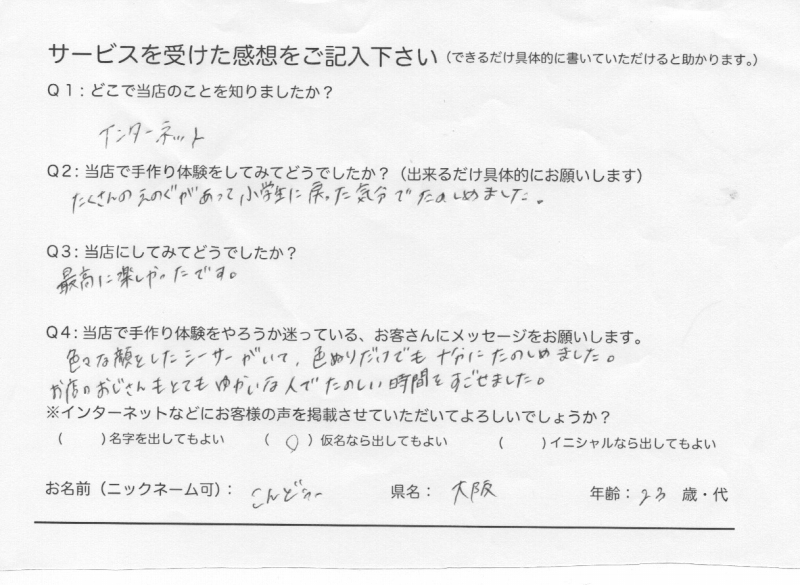 サービスを受けた感想をご記入下さい(できるだけ具体的に書いていただけると助かります。)
Q1:どこで当店のことを知りましたか?
インターネット
Q2:当店で手作り体験をしてみてどうでしたか?(出来るだけ具体的にお願いします)
たくさんのえのぐがあって小学生に戻った気分でたのしめました。
Q3:当店にしてみてどうでしたか?
最高に楽しかったです。
Q4:当店で手作り体験をやろうか迷っている、お客さんにメッセージをお願いします。
色々な顔をしたシーサーがいて、色ぬりだけでも十分にたのしめました。
お店のおじさんもとてもゆかいな人でたのしい時間をすごせました。
※インターネットなどにお客様の声を掲載させていただいてよろしいでしょうか?
( )名字を出してもよい (○)仮名なら出してもよい ( )イニシャルなら出してもよい
お名前(ニックネーム可):こんどぅー 県名:大阪 年齢:23 歳・代